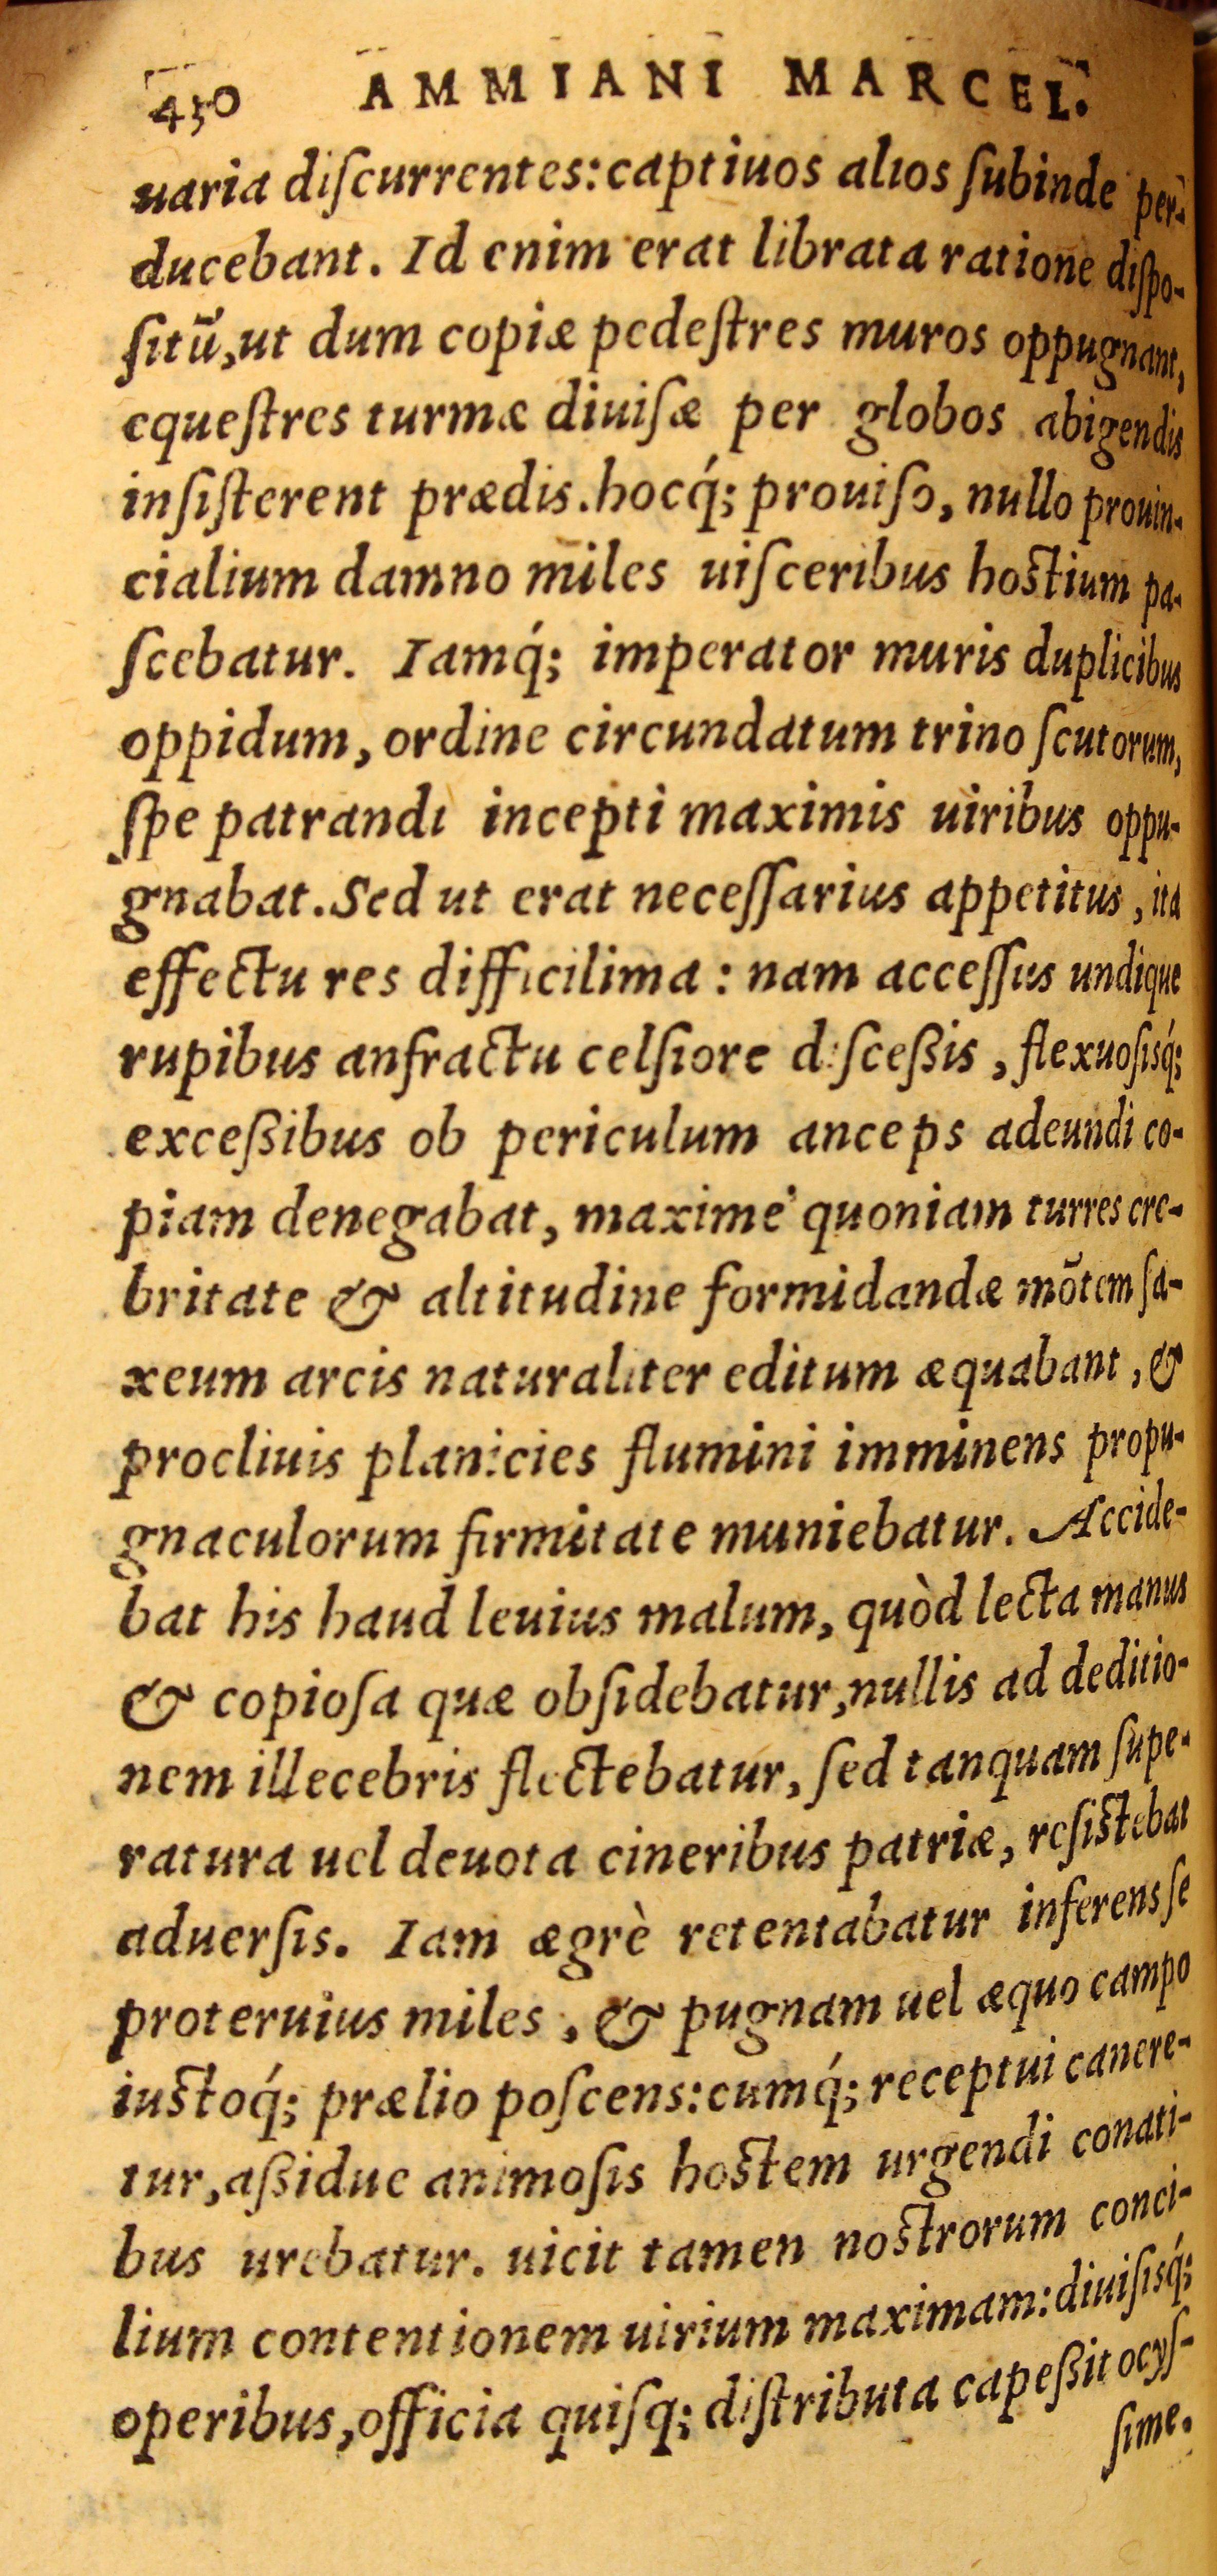 450 AMMIANI MARCEL.
uaria diſcurrentes: captiuos alios ſubinde per-
ducebant. Id enim erat librata ratione diſpo-
ſitū, ut dum copiæ pedeſtres muros oppugnant,
equeſtres turmæ diuiſæ per globos abigendis
inſiſterent prædis. hocq́; prouiſo, nullo prouin-
cialium damno miles uiſceribus hoſtium pa-
ſcebatur. Iamq́; imperator muris duplicibus
oppidum, ordine circundatum trino ſcutorum,
ſpe patrandi incepti maximis uiribus oppu-
gnabat. Sed ut erat neceſſarius appetitus, ita
effectu res difficilima: nam acceſſus undique
rupibus anfractu celſiore diſceßis, flexuoſisq́;
exceßibus ob periculum anceps adeundi co-
piam denegabat, maxime quoniam turres cre-
britate & altitudine formidandæ mōtem ſa-
xeum arcis naturaliter editum æquabant, &
procliuis planicies flumini imminens propu-
gnaculorum firmitate muniebatur. Accide-
bat his haud leuius malum, quòd lecta manus
& copioſa quæ obſidebatur, nullis ad deditio-
nem illecebris flectebatur, ſed tanquam ſupe-
ratura uel deuota cineribus patriæ, reſiſtebat
aduerſis. Iam ægrè retentabatur inferens ſe
proteruius miles, & pugnam uel æquo campo
iuſtoq́; prælio poſcens: cumq́; receptui canere-
tur, aßidue animoſis hoſtem urgendi conati-
bus urebatur. uicit tamen noſtrorum conci-
lium contentionem uirium maximam: diuiſisq́;
operibus, officia quiſq; diſtributa capeßit ocyſ-
ſime.